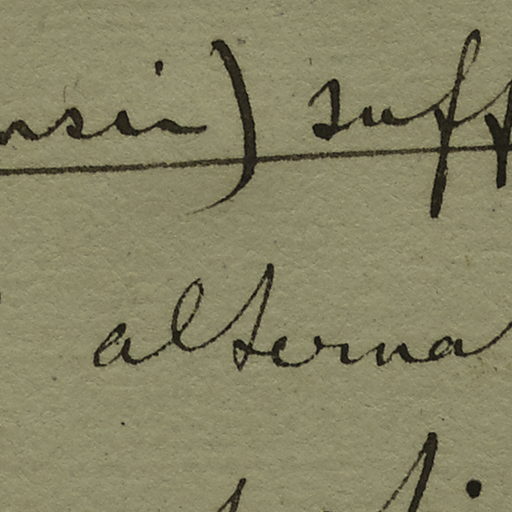 nsii) suff
alterna